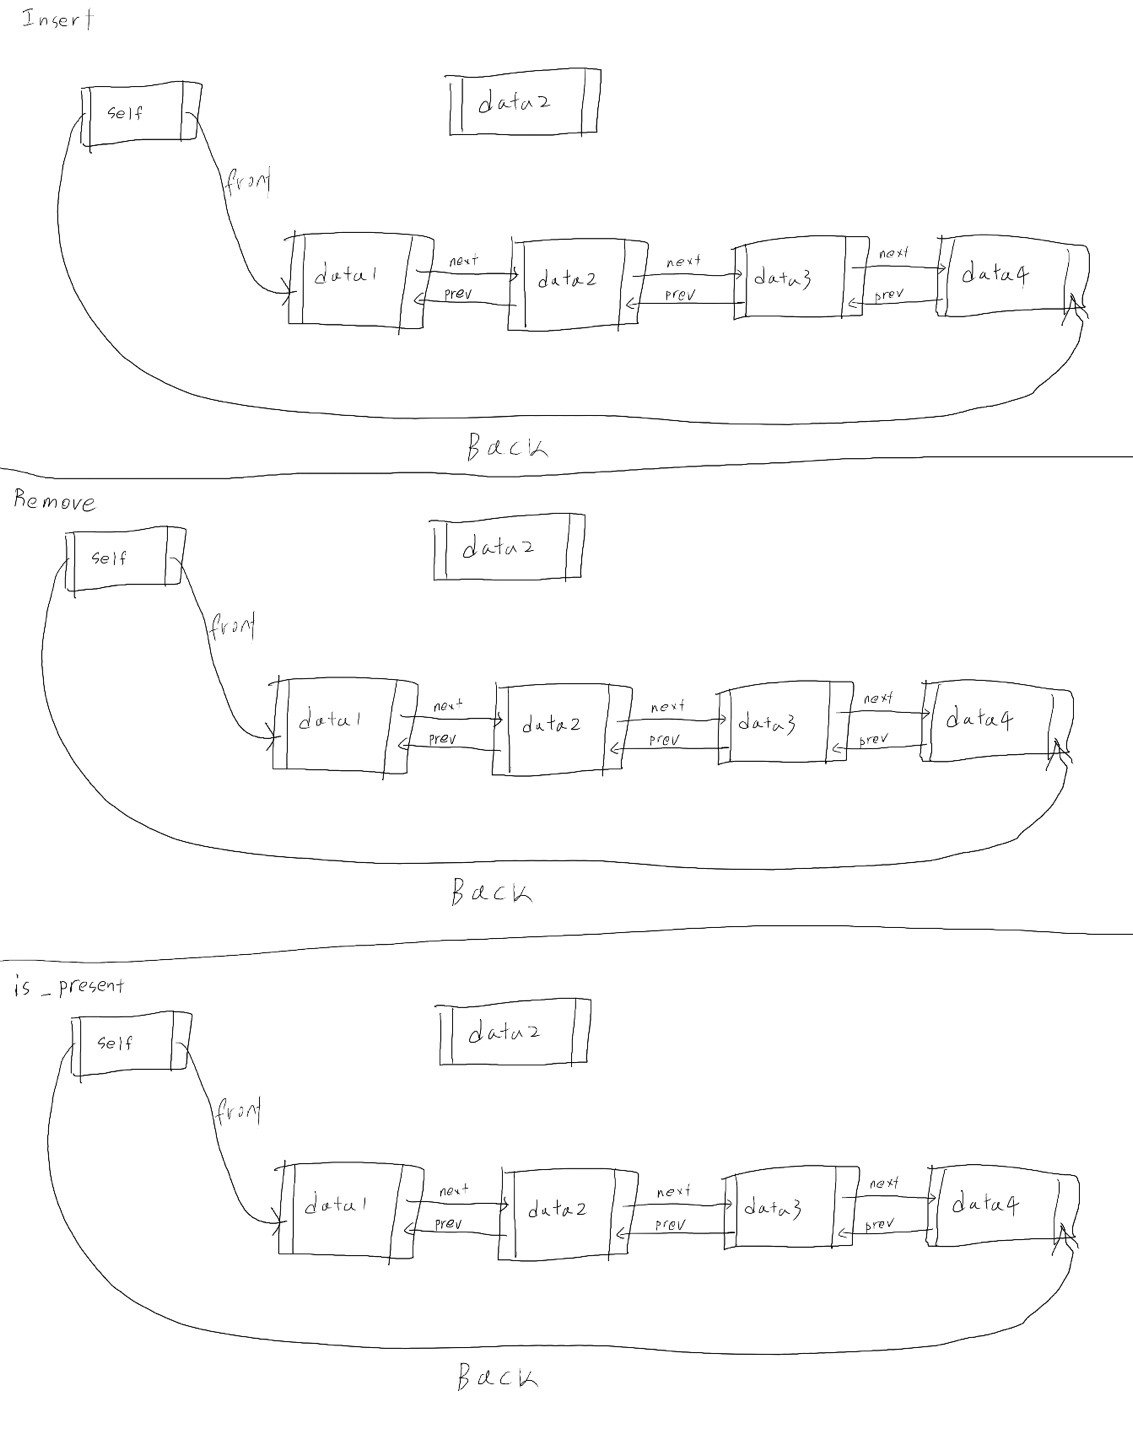 Insert
self
data2
front
data1
next
prev
data2
next
prev
data3
next
prev
data4
Back
Remove
self
data2
front
data1
next
prev
data2
next
prev
data3
next
prev
data4
Back
is_present
self
data2
front
data1
next
prev
data2
next
prev
data3
next
prev
data4
Back